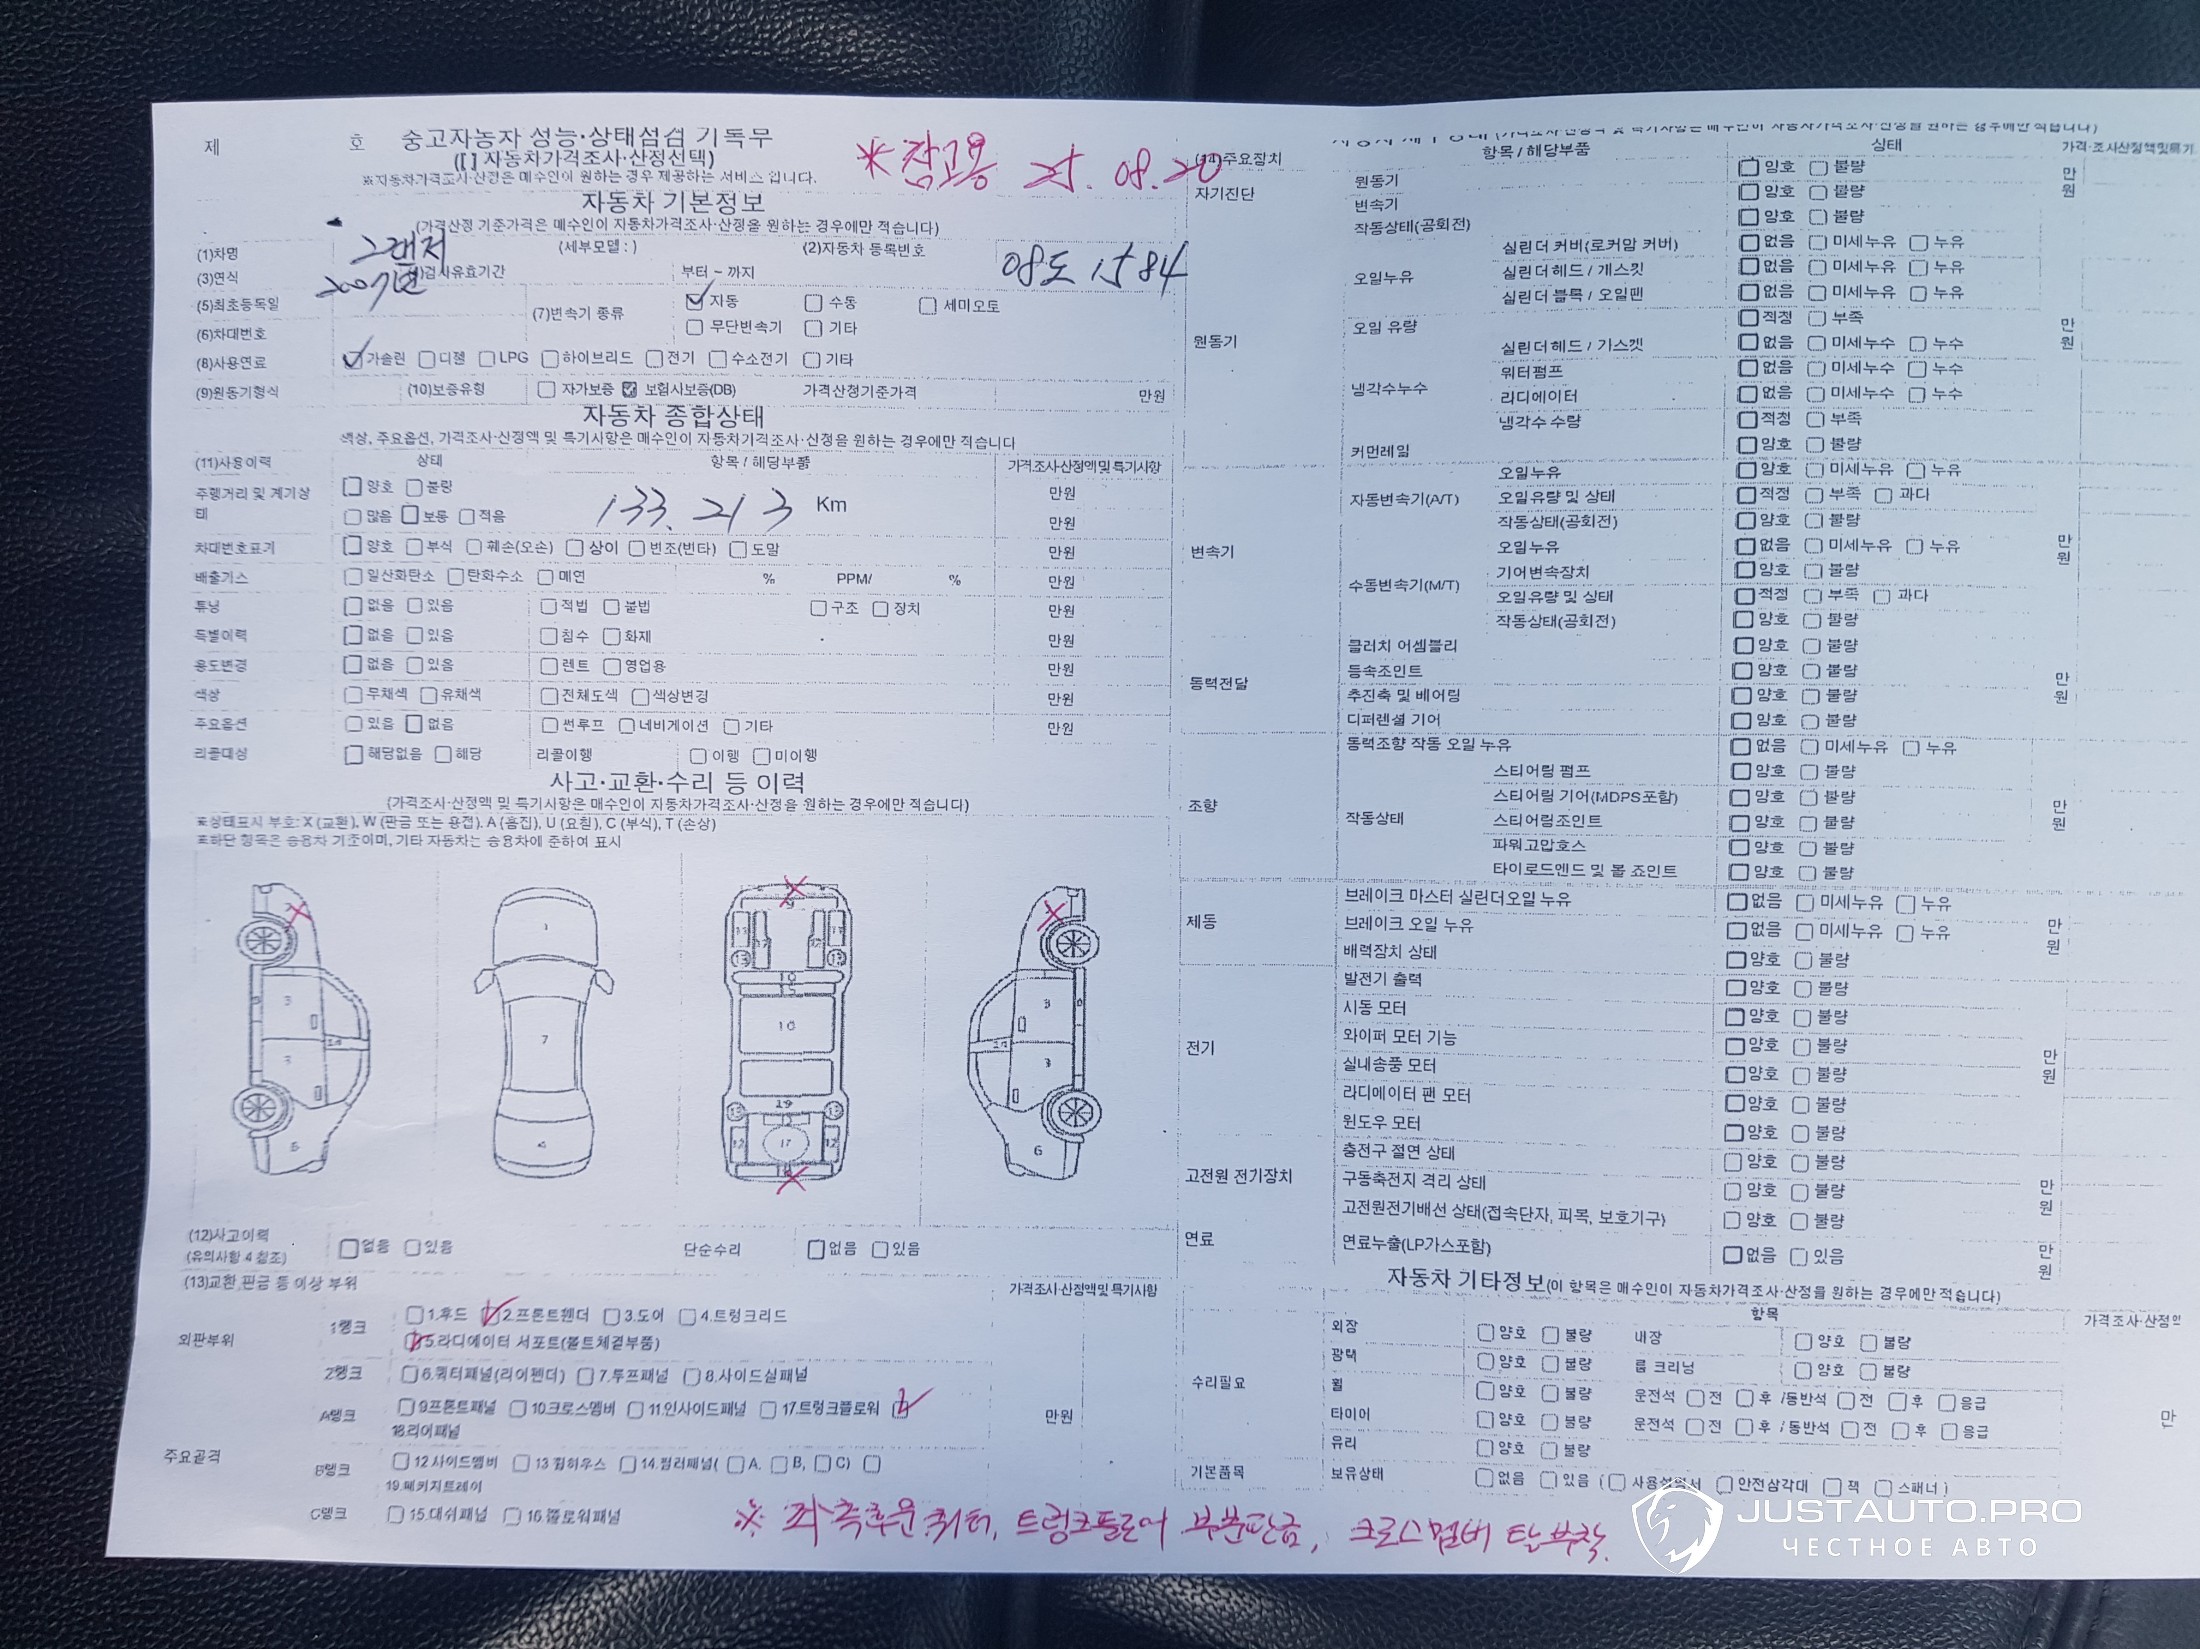 제 호 중고자동차 성능·상태점검 기록부
([ ] 자동차가격조사·산정선택)
※자동차가격조사·산정은 매수인이 원하는 경우 제공하는 서비스 입니다.
※참고용 25. 08. 20
자동차 기본정보
(가격산정 기준가격은 매수인이 자동차가격조사·산정을 원하는 경우에만 적습니다)
(1)차명 그랜저 (세부모델 : ) (2)자동차 등록번호 08도 1584
(3)연식 (4)검사유효기간 부터 ~ 까지
(5)최초등록일 (7)변속기 종류 자동 수동 세미오토
(6)차대번호 무단변속기 기타
(8)사용연료 가솔린 디젤 LPG 하이브리드 전기 수소전기 기타
(9)원동기형식 (10)보증유형 자가보증 보험사보증(DB) 가격산정기준가격 만원
자동차 종합상태
색상, 주요옵션, 가격조사·산정액 및 특기사항은 매수인이 자동차가격조사·산정을 원하는 경우에만 적습니다
(11)사용이력 상태 항목 / 해당부품 가격조사·산정액 및 특기사항
주행거리 및 계기상태 양호 불량 만원
많음 보통 적음 133,213 Km 만원
차대번호표기 양호 부식 훼손(오손) 상이 변조(변타) 도말 만원
배출가스 일산화탄소 탄화수소 매연 % PPM/ % 만원
튜닝 없음 있음 적법 불법 구조 장치 만원
특별이력 없음 있음 침수 화재 만원
용도변경 없음 있음 렌트 영업용 만원
색상 무채색 유채색 전체도색 색상변경 만원
주요옵션 있음 없음 썬루프 네비게이션 기타 만원
리콜대상 해당없음 해당 리콜이행 이행 미이행
사고·교환·수리 등 이력
(가격조사·산정액 및 특기사항은 매수인이 자동차가격조사·산정을 원하는 경우에만 적습니다)
※상태표시 부호: X (교환), W (판금 또는 용접), A (흠집), U (요철), C (부식), T (손상)
※하단 항목은 승용차 기준이며, 기타 자동차는 승용차에 준하여 표시
(12)사고이력
(유의사항 4 참조) 없음 있음 단순수리 없음 있음
(13)교환,판금 등 이상 부위 가격조사·산정액 및 특기사항
외판부위 1랭크 1.후드 2.프론트휀더 3.도어 4.트렁크리드
5.라디에이터 서포트(볼트체결부품)
2랭크 6.쿼터패널(리어휀더) 7.루프패널 8.사이드실패널
주요골격 A랭크 9.프론트패널 10.크로스멤버 11.인사이드패널 17.트렁크플로워
18.리어패널 만원
B랭크 12.사이드멤버 13.휠하우스 14.필러패널( A, B, C)
19.패키지트레이
C랭크 15.대쉬패널 16.플로워패널
※ 좌측후문쿼터, 트렁크플로어 부분판금, 크로스멤버 탈부착.
(14)주요장치 항목 / 해당부품 상태 가격·조사산정액및특기
자기진단 원동기 양호 불량 만원
변속기 양호 불량
원동기 작동상태(공회전) 양호 불량
오일누유 실린더 커버(로커암 커버) 없음 미세누유 누유
실린더 헤드 / 개스킷 없음 미세누유 누유
실린더 블록 / 오일팬 없음 미세누유 누유
오일 유량 적정 부족 만원
냉각수누수 실린더 헤드 / 가스켓 없음 미세누수 누수
워터펌프 없음 미세누수 누수
라디에이터 없음 미세누수 누수
냉각수 수량 적정 부족
커먼레일 양호 불량
변속기 자동변속기(A/T) 오일누유 양호 미세누유 누유
오일유량 및 상태 적정 부족 과다
작동상태(공회전) 양호 불량
수동변속기(M/T) 오일누유 없음 미세누유 누유 만원
기어변속장치 양호 불량
오일유량 및 상태 적정 부족 과다
작동상태(공회전) 양호 불량
동력전달 클러치 어셈블리 양호 불량
등속조인트 양호 불량 만원
추진축 및 베어링 양호 불량
디퍼렌셜 기어 양호 불량
조향 동력조향 작동 오일 누유 없음 미세누유 누유
작동상태 스티어링 펌프 양호 불량
스티어링 기어(MDPS포함) 양호 불량 만원
스티어링조인트 양호 불량
파워고압호스 양호 불량
타이로드엔드 및 볼 죠인트 양호 불량
제동 브레이크 마스터 실린더오일 누유 없음 미세누유 누유
브레이크 오일 누유 없음 미세누유 누유 만원
배력장치 상태 양호 불량
전기 발전기 출력 양호 불량
시동 모터 양호 불량
와이퍼 모터 기능 양호 불량
실내송풍 모터 양호 불량 만원
라디에이터 팬 모터 양호 불량
윈도우 모터 양호 불량
고전원 전기장치 충전구 절연 상태 양호 불량
구동축전지 격리 상태 양호 불량 만원
고전원전기배선 상태(접속단자, 피목, 보호기구) 양호 불량
연료 연료누출(LP가스포함) 없음 있음 만원
자동차 기타정보(이 항목은 매수인이 자동차가격조사·산정을 원하는 경우에만 적습니다)
항목 가격조사·산정
수리필요 외장 양호 불량 내장 양호 불량
광택 양호 불량 룸 크리닝 양호 불량
휠 양호 불량 운전석 전 후 /동반석 전 후 응급
타이어 양호 불량 운전석 전 후 /동반석 전 후 응급 만
유리 양호 불량
기본품목 보유상태 없음 있음 ( 사용설명서 안전삼각대 잭 스패너 )
JUSTAUTO.PRO
ЧЕСТНОЕ АВТО